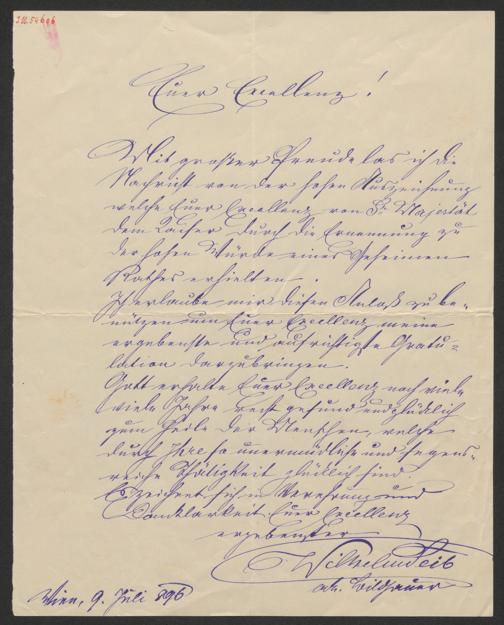 I.N. 54606
Euer Excellenz!
Mit großer Freude las ich die
Nachricht von der hohen Auszeichnung
welche Euer Excellenz von Sr Majestät
dem Kaiser durch die Ernennung zu
der hohen Würde eines Geheimen
Rathes erhielten.
Ich erlaube mir diesen Anlaß zu be-
nützen um Euer Excellenz meine
ergebenste und aufrichtigste Gratu-
lation darzubringen.
Gott erhalte Euer Excellenz noch viele
viele Jahre recht gesund und glücklich
zum Heile der Menschen, welche
durch Ihre so unermüdliche und segens-
reiche Thätigkeit glücklich sind.
Es zeichnet sich in Verehrung und
Dankbarkeit Euer Excellenz
ergebenster
Wilhelm Seib
ak. Bildhauer
Wien, 9. Juli 896